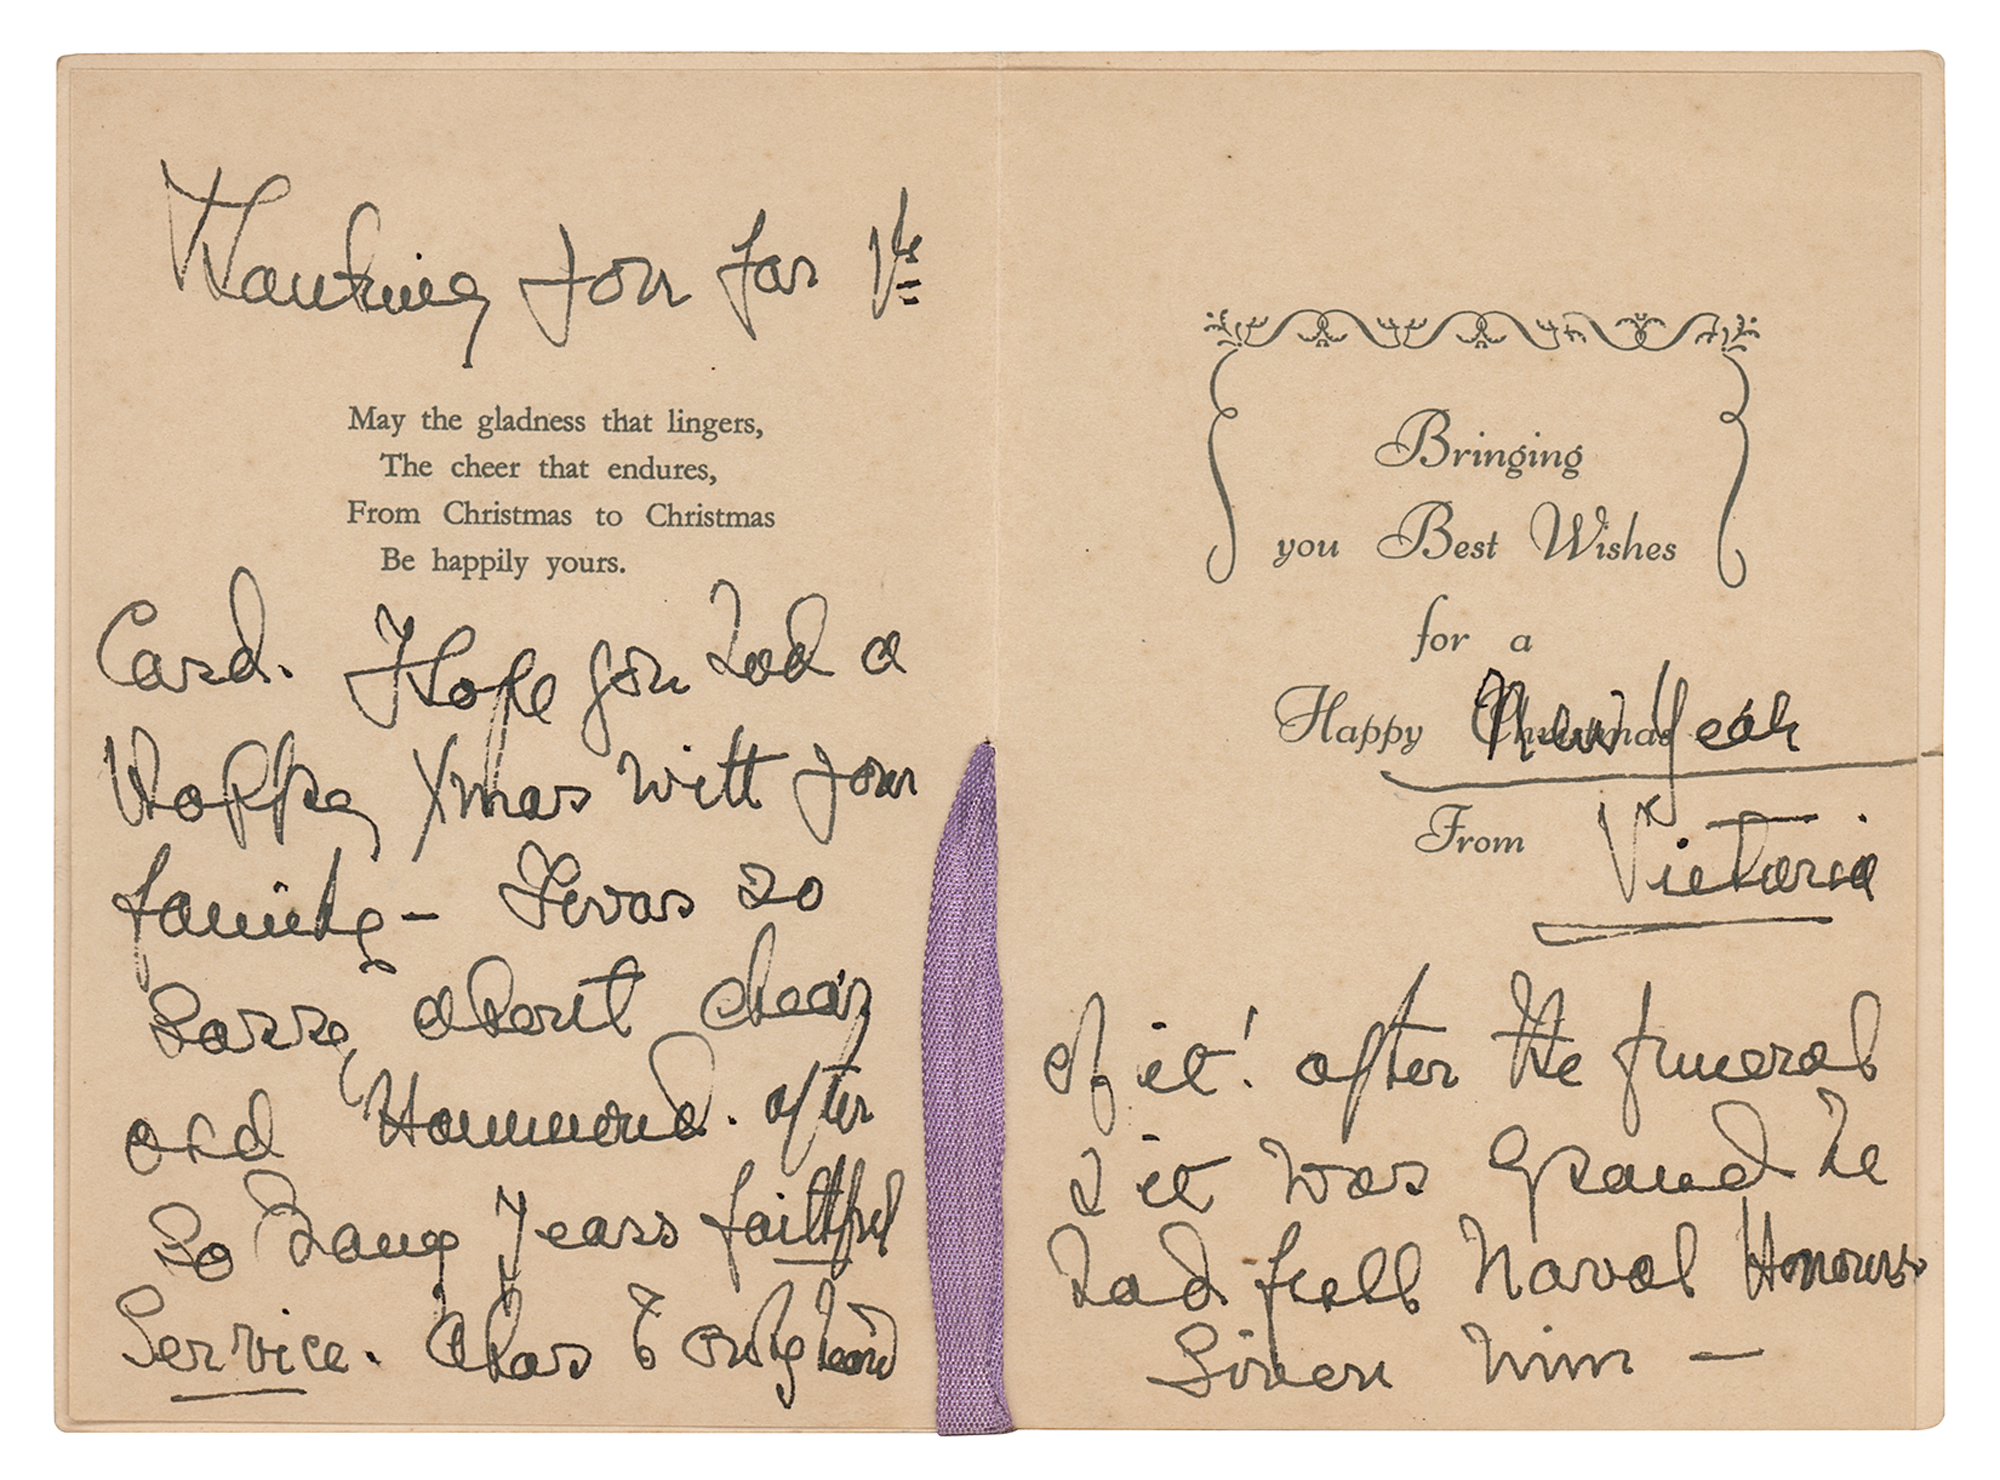 Thanking you for
May the gladness that lingers,
The cheer that endures,
From Christmas to Christmas
Be happily yours.
Card. I Hope you had a
Happy Xmas with your
family — I was so
sorry about dear
old Hammond. after
so many years faithful
Service. Alas I only heard
Bringing
you Best Wishes
for a
Happy Christmas New Year
From Victoria
of it! after the funeral
& it was grand he
had full Naval Honours
Given him —